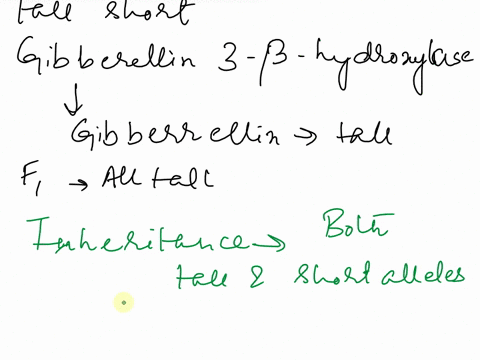 tall short
Gibberellin 3-β-hydroxylase
↓
Gibberrellin → tall
F₁ → All tall
Inheritance → Both
tall & short alleles